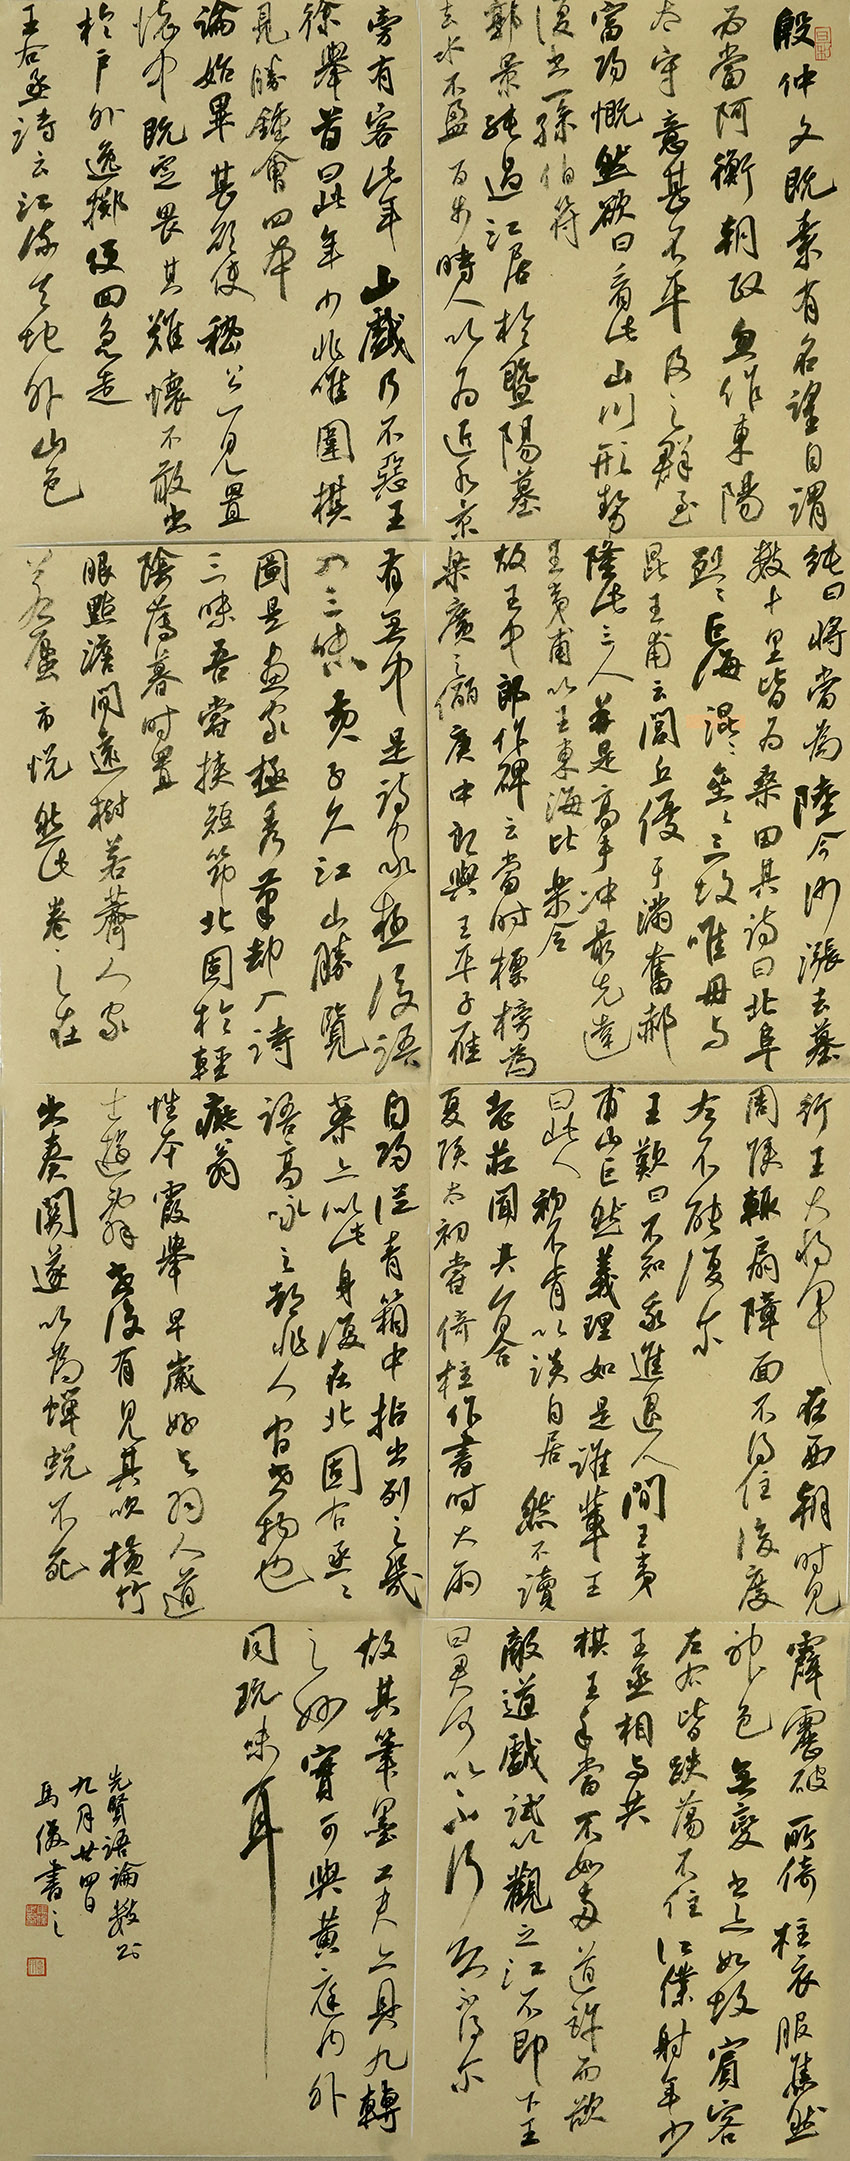 殷仲文既素有名望自謂
必當阿衡朝政忽作東陽
太守意甚不平及之郡至
富陽慨然歎曰看此山川形勢
復出一孫伯符
郭景純過江居於暨陽墓
去水不盈百步時人以為近水景
純曰將當為陸今沙漲去墓
數十里皆為桑田其詩曰北阜
烈烈巨海混混壘壘三墳唯母與
昆王甫云閭丘優于滿奮郝
隆此三人並是高才沖最先達
王夷甫以王東海比樂令
故王中郎作碑云當時標榜為
樂廣之儷庾中郎與王平子雁
行王大將軍在西朝時見
周侯輒扇障面不得住後度
左不能復爾
王歎曰不知我進退人間王夷
甫山巨然義理如是誰輩王
曰此人初不肯以談自居然不讀
老莊聞其詠合
夏侯太初嘗倚柱作書時大雨
霹靂破所倚柱衣服焦然
神色無變書亦如故賓客
左右皆跌蕩不住江僕射年少
王丞相與共
棋王手嘗不如兩道許而欲
敵道戲試以觀之江不即下王
曰君何以不行江曰恐不得爾
旁有客此年少戲乃不惡王
徐舉首曰此年少非唯圍棋
見勝鍾會四本
論始畢甚欲使嵇公一見置
懷中既定畏其難懷不敢出
於戶外遙擲便回急走
王右丞詩云江流天地外山色
有無中是詩家極俊語
入三昧黃子久江山勝覽
圖是畫家極秀筆却入詩
三昧吾嘗挾短筇北固於輕
陰薄暮時置
眼點澹間遠樹若薺人家
若蜃市恍然此卷之在
目陽從青箱中拈出列之幾
案上以此身復在北固右丞之
語高詠之都非人間世物也
癡翁
性本霞舉早歲好與羽人道
士遊 世後有見其吹橫竹
出秦關遂以為蟬蛻不死
故其筆墨工夫亦具九轉
之妙寶可與黃庭內外
同玩味耳
先賢語論數則
九月廿四日
馬優書之